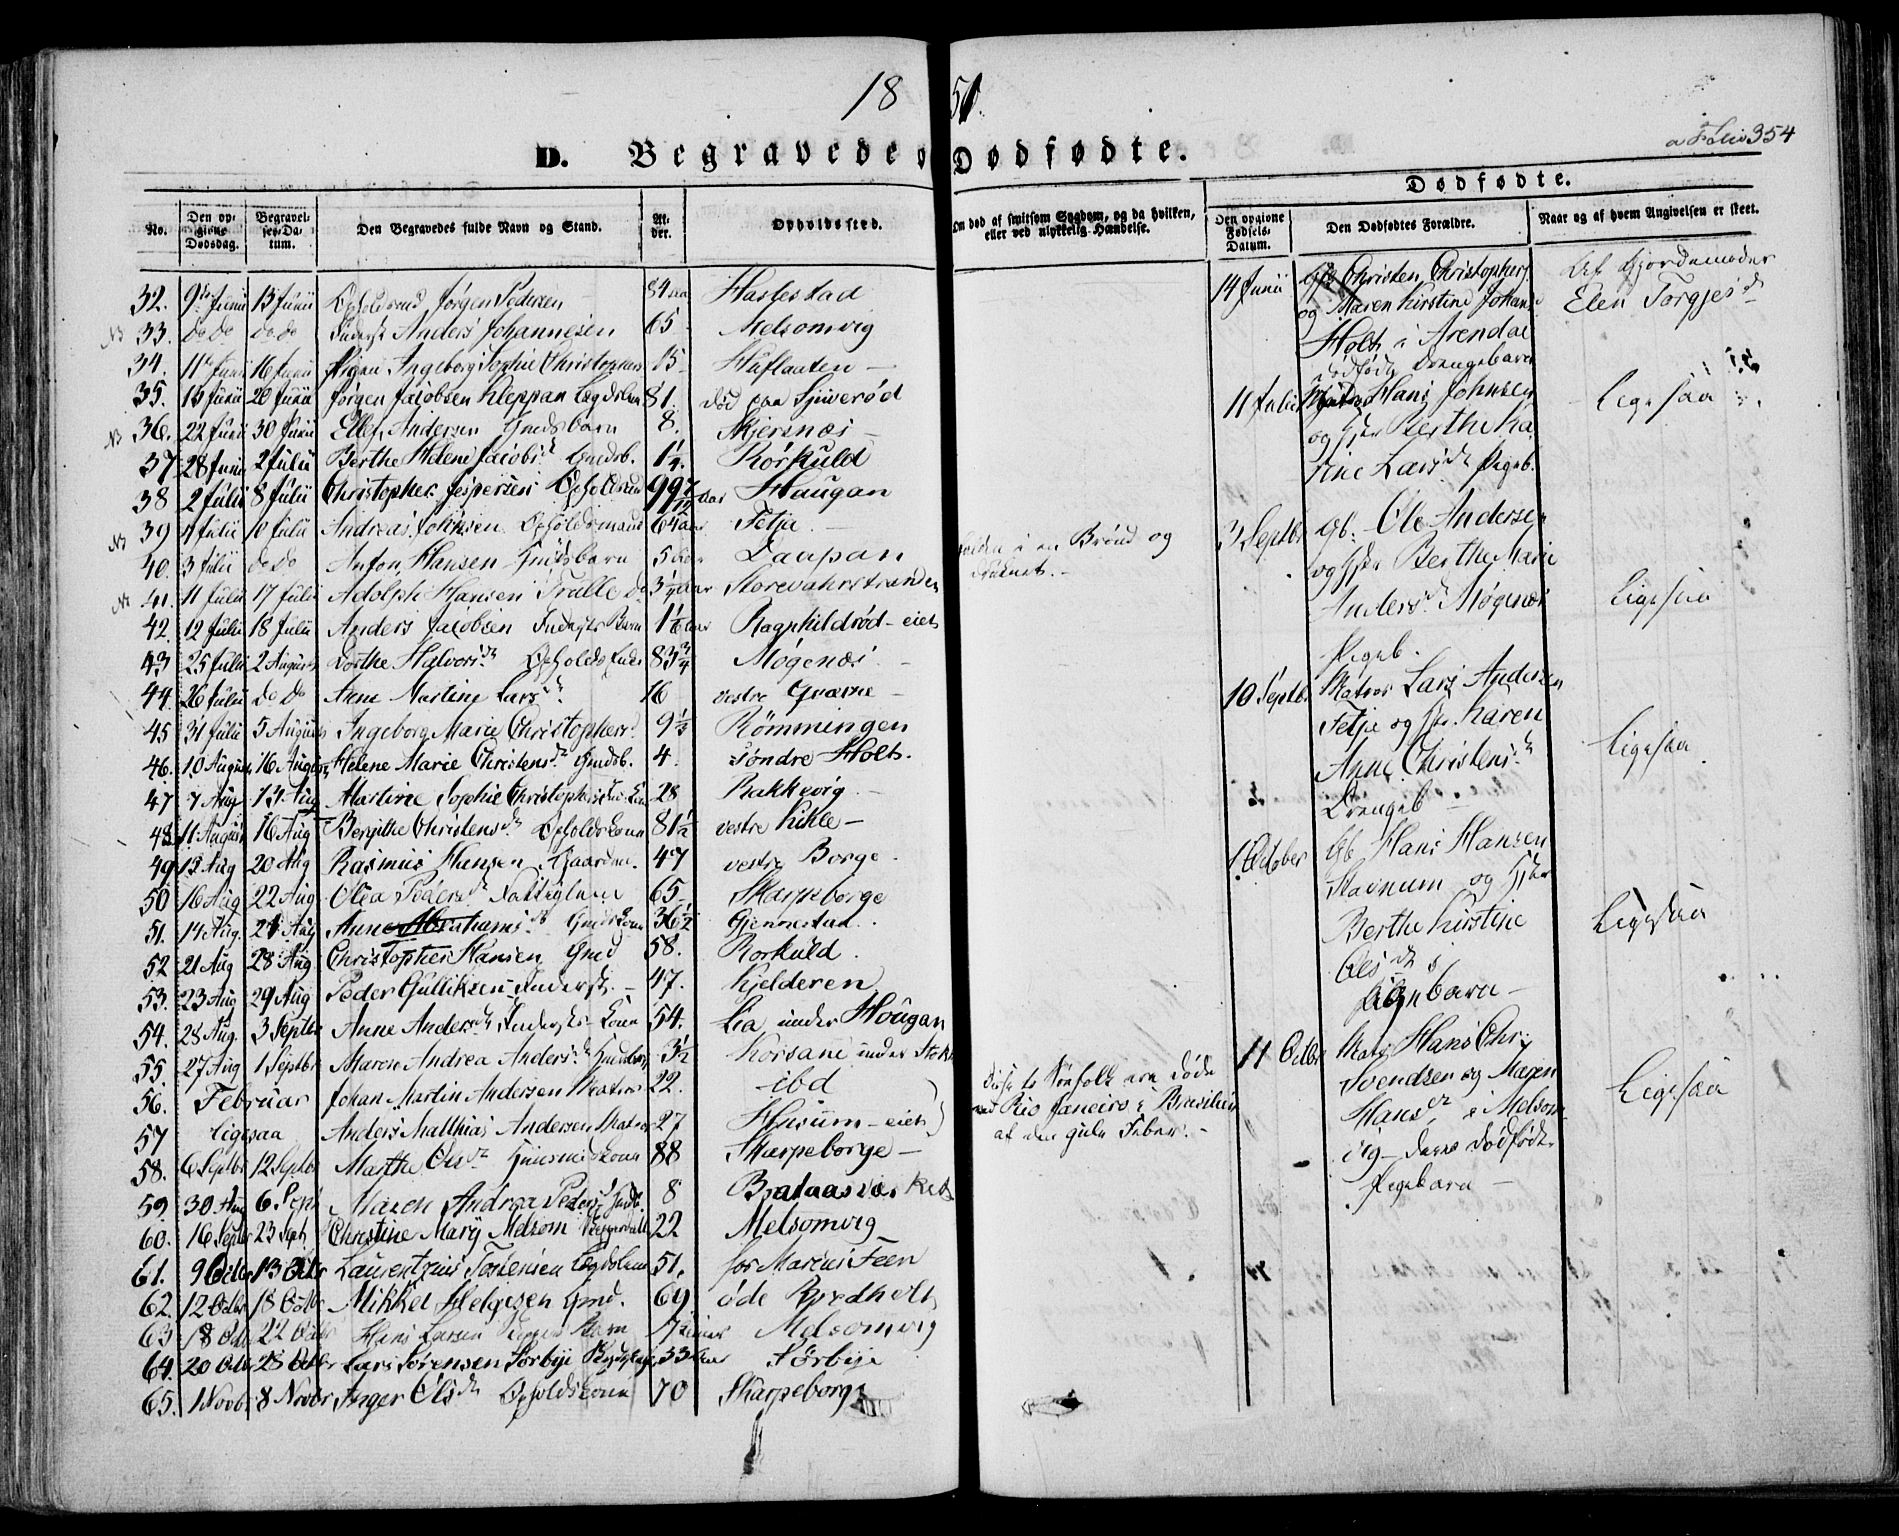 1851.
a Folio 354
D. Begravede o Dødfødte.
Dødfødte.
No. | Den opgivne Dødsdag. | Begravelses-Datum. | Den Begravedes fulde Navn og Stand. | Alder. | Opholdssted. | Om død af smitsom Sygdom, og da hvilken, eller ved ulykkelig Hændelse. | Den opgivne Fødsels-Datum. | Den Dødfødtes Forældre. | Naar og af hvem Angivelsen er skeet.
32. 9de Junii 15 Junii Opholdsmd Jørgen Pedersen 84 aar Haslestad
NB 33. do do do do Inderst Anders Johannesen 65 Melsomvig
34. 11te Junii 16 Junii Pigen Ingeborg Sophie Christophers 15 Haflaaten
35. 15 Junii 20 Junii Jørgen Jacobsen Kleppan Lægdslem 81. død paa Sjuverød
NB 36. 22 Junii 30 Junii Ellef Andersen Gmdsbarn 8. Skjersnæs
37 28 Junii 2 Julii Berthe Helene Jacobsd. Gmdsb. 1¼. Rørkuld
38 2 Julii 8 Julii Christopher Jespersen Opholdsmd 99 7/12 aar Haugan
39 4 Julii 10 Julii Andreas Johnsen Opholdsmand 64 aar Fetja
NB 40. 3 Julii do do Anton Hansen Gmdsbarn 5 Laupan
falden i en Brønd og
druknet.
NB 41. 11 Julii 17 Julii Adolph Hansen Tralle do 3½ aar Storevahrstranden
42. 12 Julii 18 Julii Anders Jacobsen Indersts Barn 1 1/6 aar Ragnhildrød-eiet
43 25 Julii 2 August Dorthe Halvorsd. Opholds 83¾ Møgenæs
44. 26 Julii do do Anne Martine Larsd. 16 vestre Quærne
45 31 Julii 5 August Ingeborg Marie Christophers 9½ Rømmingen
46. 10 August 16 August Helene Marie Christensd. Gmdsb. 4. søndre Holt.
47 7 Aug 13 Aug Martine Sophie Christophersd 28 Rakkevig
48 11 August 16 Aug Bergithe Christensd. Opholdskone 81½ vestre Kihle
49 15 Aug 20 Aug Rasmus Hansen Gaardm. 47 vestre Borge.
50 16 Aug 22 Aug Olea Pedersd. Fattiglem 65 Skarpeborge
51. 14 Aug. 21 Aug Anne Abrahamsd. Gmdskone 36½ Gjennestad.
52 21 Aug 28 Aug Christopher Hansen Gmd 58. Rørkuld.
53. 23 Aug 29 Aug Peder Gulliksen Inderst. 47. Kjelderen
54. 28 Aug. 3 Septbr Anne Andersd. Indersts kone 54. Lia under Hougan
55 27 Aug 1 Septbr Maren Andrea Andersd. Gmdsb. 3½ Korsane under Stok
56. Februar Johan Martin Andersen Matros 22. ibd
57 ligesaa Anders Matthias Andersen Matros 27 Husum-eiet
Disse to Søefolk ere døde
ved Rio Janeiro i Brasilien
af den gule Feber.
58. 6 Septbr 12 Septbr Marthe Olsd. Huusmdskone 88 Skarpeborge
59. 30 Aug 6. Sept Maren Andrea Pedersd. Gmdb. 8 Brataas
60. 16 Septbr 23 Sept Christine Mary Melsom 22 Melsomvig
61. 9 Octbr 13 Octbr Laurentzius Torstensen Lægdslem 51. for Marcus Feen
62 12 Octbr 18 Octbr Mikkel Helgesen Gmd. 69 øde Rødholt
63 18 Octbr 22 Octbr Hans Larsen Barn Melsomvig
64. 20 Octbr 28 Octbr Lars Sørensen Sørbye 33 Aar Sørbye
65. 1 Novbr 8 Novbr Inger Olsd. Opholdskone 70 Skarpeborge
14 Junii
Christen Christophers
og Maren Kirstine Johans
Holt i Arendal
dødfødt Drengebarn
Af Gjordemoder
Elen Torgjesd.
11 Julii
Hans Johnsen
og Hstr Berthe Ka
rine Larsd. Pigeb.
Ligesaa
3 Septbr
Gb: Ole Andersen
og Hstr Berthe Marie
Andersd. Møgenæs
Pigeb.
Ligesaa
10 Septbr
Matros Lars Andersen
Fetja og Hstr. Karen
Anne Christensd.
Drengeb
Ligesaa
1 October
Gb Hans Hansen
Stavnum og Hstr
Berthe Kirstine
Olsd.
Pigebarn
Ligesaa
11 Octbr
Matr Hans Chr.
Svendsen og Maren
Hansd. i Melsom
vig – deres dødfødte
Pigebarn
Ligesaa